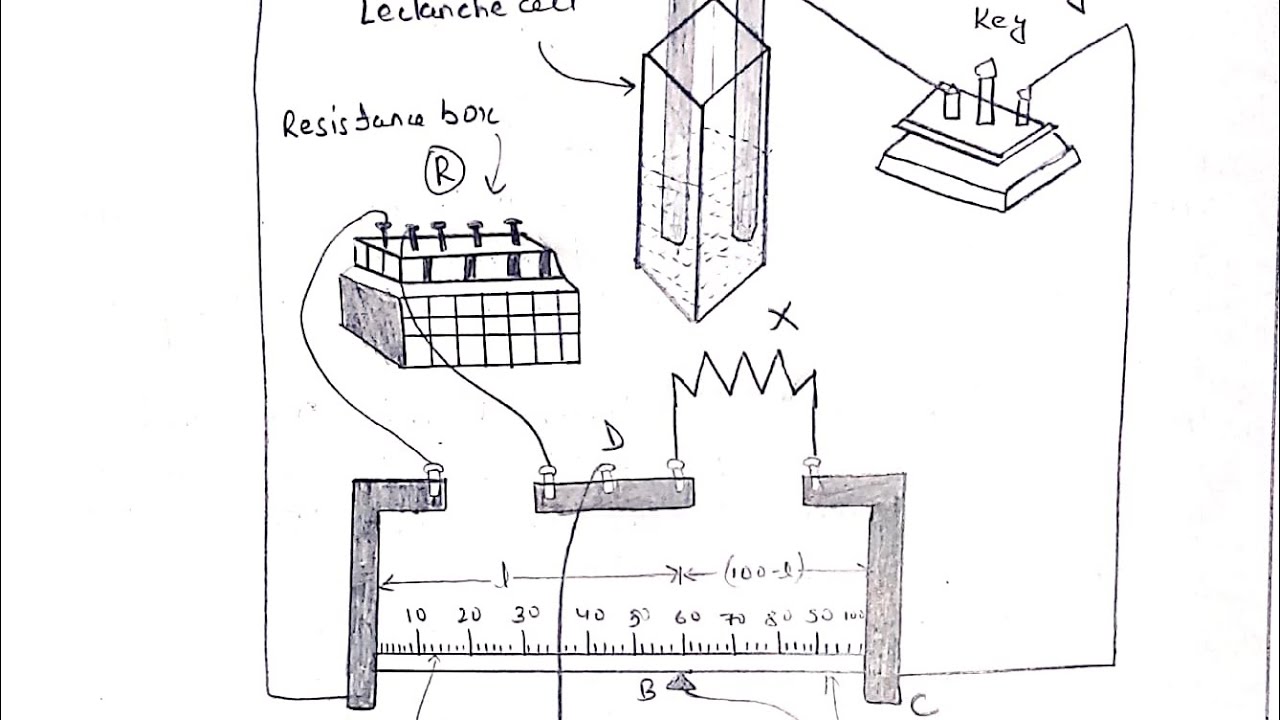 Leclanche cell
Key
Resistance box
R
X
D
l
(100-l)
10 20 30 40 50 60 70 80 50 100
B
C